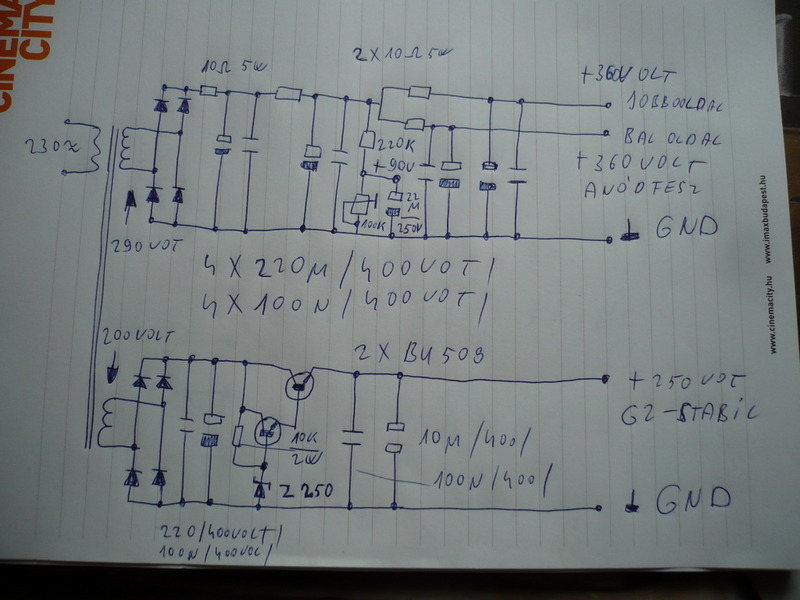 CINEMA
CITY
10Ω 5W
2X10Ω5W
+360VOLT
JOBBOLDAL
230~
220K
BAL OLDAL
+90V
+360VOLT
ANÓDFESZ
22
M
250V
100K
GND
290VOT
4X220M/400VOT/
4X100N/400VOT/
200VOLT
2X BU508
+250VOT
G2-STABIL
10K
2W
10M/400/
100N/400/
Z250
GND
220/400VOLT/
100N/400VOL/
www.cinemacity.hu
www.imaxbudapest.hu